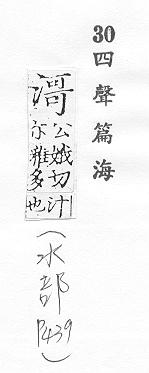 30四聲篇海
滒
公娥切汁
尒雅多也
(水部 P.439)